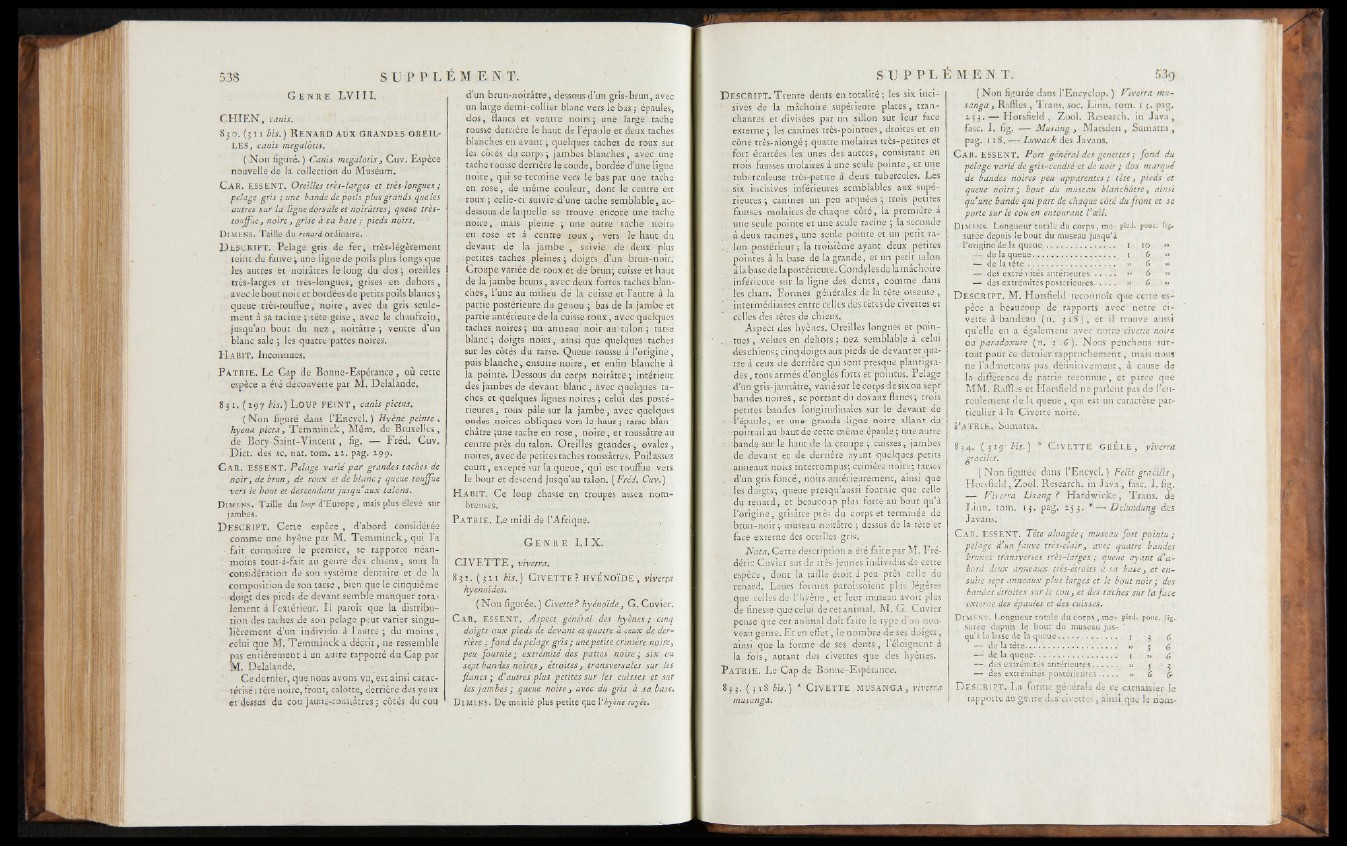 538 SUPPLÉMENT.
GENRE LVIII.
CHIEN, canis.
830. (311 bis.) RENARD AUX GRANDES OREIL-
LES, canis megalotis.
(Non figuré.) Canis megalotis, Cuv. Espèce
nouvelle de la collection du Muséum.
CAR. ESSENT. Oreilles très-larges et très-longues;
pelage gris; une bande de poils plus grands que les
autres sur la ligne dorsale et noirâtres; queue très-
touffue, noire, grise à sa base; pieds noirs.
DIMENS. Taille du renard ordinaire.
DESCRIPT. Pelage gris de fer, très-légèrement
teint de fauve; une ligne de poils plus longs que
les autres et noirâtres le long du dos; oreilles
très-larges et très-longues, grises en dehors,
avec le bout noir et bordées de petits poils blancs;
queue très-touffue, noire, avec du gris seule-
ment à sa racine; tête grise, avec le chanfrein,
jusqu'au bout du nez, noirâtre; ventre d'un
blanc sale; les quatre pattes noires.
HABIT. Inconnues.
PATRIE. Le Cap de Bonne-Espérance, où cette
espèce a été découverte par M. Delalande.
831. (297 bis.) LOUP PEINT, canis pictus.
(Non figuré dans l'Encycl.) Hyène peinte,
hyena picta, Temminck, Mém. de Bruxelles,
de Bory-Saint-Vincent, fig. — Fréd. Cuv.
Dict. des sc. nat. tom. 22. pag. 299.
CAR. ESSENT. Pelage varié par grandes taches de
noir, de brun, de roux et de blanc; queue touffue
vers le bout et descendant jusqu'aux talons.
DIMENS. Taille du loup d'Europe, mais plus élevé sur
jambes.
DESCRIPT. Cette espèce, d'abord considérée
comme une hyène par M. Temminck, qui l'a
fait connoître le premier, se rapporte néan-
moins tout-à-fait au genre des chiens, sous la
considération de son système dentaire et de la
composition de son tarse, bien que le cinquième
doigt des pieds de devant semble manquer tota-
lement à l'extérieur. Il paroît que la distribu-
tion des taches de son pelage peut varier singu-
lièrement d'un individu à l'autre; du moins,
celui que M. Temminck a décrit, ne ressemble
pas entièrement à un autre rapporté du Cap par
M. Delalande.
Ce dernier, que nous avons vu, est ainsi carac-
térisé: tête noire, front, calotte, derrière des yeux
et dessus du cou jaune-roussâtres; côtés du cou
d'un brun-noirâtre, dessous d'un gris-brun, avec
un large demi-collier blanc vers le bas; épaules,
dos, flancs et ventre noirs; une large tache
rousse derrière le haut de l'épaule et deux taches
blanches en avant; quelques taches de roux sur
les côtés du corps; jambes blanches, avec une
tache rousse derrière le coude, bordée d'une ligne
noire, qui se termine vers le bas par une tache
en rose, de même couleur, dont le centre est
roux; celle-ci suivie d'une tache semblable, au-
dessous de laquelle se trouve encore une tache
noire, mais pleine; une autre tache noire
en rose et à centre roux, vers le haut du
devant de la jambe, suivie de deux plus
petites taches pleines; doigts d'un brun-noir.
Croupe variée de roux et de brun; cuisse et haut
de la jambe bruns, avec deux fortes taches blan-
ches, l'une au milieu de la cuisse et l'autre à la
partie postérieure du genou; bas de la jambe et
partie antérieure de la cuisse roux, avec quelques
taches noires; un anneau noir au talon; tarse
blanc; doigts noirs, ainsi que quelques taches
sur les côtés du tarse. Queue rousse à l'origine,
puis blanche, ensuite noire, et enfin blanche à
la pointe. Dessous du corps noirâtre; intérieur
des jambes de devant blanc, avec quelques ta-
ches et quelques lignes noires; celui des posté-
rieures, roux pâle sur la jambe, avec quelques
ondes noires obliques vers le haut; tarse blan-
châtre; une tache en rose, noire, et roussâtre au
centre près du talon. Oreilles grandes, ovales,
noires, avec de petites taches roussâtres. Poil assez
court, excepté sur la queue, qui est touffue vers
le bout et descend jusqu'au talon. (Fréd. Cuv.)
HABIT. Ce loup chasse en troupes assez nom-
breuses.
PATRIE. Le midi de l'Afrique.
GENRE LIX.
CIVETTE, viverra.
832. (321 bis.) CIVETTE? HYÉNOÏDE, viverra
hyenoïdes.
(Non figurée.) Civette? hyénoïde, G. Cuvier.
CAR. ESSENT. Aspect général des hyènes; cinq
doigts aux pieds de devant et quatre à ceux de der-
rière; fond du pelage gris; une petite crinière noire,
peu fournie; extrémité des pattes noire; six ou
sept bandes noires, étroites, transversales sur les
flancs; d'autres plus petites sur les cuisses et sur
les jambes; queue noire, avec du gris à sa base.
DIMENS. De moitié plus petite que l'hyène rayée.
SUPPLÉMENT. 539
DESCRIPT. Trente dents en totalité; les six inci-
sives de la mâchoire supérieure plates, tran-
chantes et divisées par un sillon sur leur face
externe; les canines très-pointues, droites et en
cône très-alongé; quatre molaires très-petites et
fort écartées les unes des autres, consistant en
trois fausses molaires à une seule pointe, et une
tuberculeuse très-petite à deux tubercules. Les
six incisives inférieures semblables aux supé-
rieures; canines un peu arquées; trois petites
fausses molaires de chaque côté, la première à
une seule pointe et une seule racine; la seconde
à deux racines, une seule pointe et un petit ta-
lon postérieur; la troisième ayant deux petites
pointes à la base de la grande, et un petit talon
à la base de la postérieure. Condyles de la mâchoire
inférieure sur la ligne des dents, comme dans
les chats. Formes générales de la tête osseuse,
intermédiaires entre celles des têtes de civettes et
celles des têtes de chiens.
Aspect des hyènes. Oreilles longues et poin-
tues, velues en dehors; nez semblable à celui
des chiens; cinq doigts aux pieds de devant et qua-
tre à ceux de derrière qui sont presque plantigra-
des, tous armés d'ongles forts et pointus. Pelage
d'un gris-jaunâtre, varié sur le corps de six ou sept
bandes noires, se portant du dos aux flancs; trois
petites bandes longitudinales sur le devant de
l'épaule, et une grande ligne noire allant du
poitrail au haut de cette même épaule; une autre
bande sur le haut de la croupe; cuisses, jambes
de devant et de derrière ayant quelques petits
anneaux noirs interrompus; crinière noire; tarses
d'un gris foncé, noirs antérieurement, ainsi que
les doigts; queue presqu'aussi fournie que celle
du renard, et beaucoup plus forte au bout qu'à
l'origine, grisâtre près du corps et terminée de
brun-noir; museau noirâtre; dessus de la tête et
face externe des oreilles gris.
Nota. Cette description a été faite par M. Fré-
déric Cuvier sur de très-jeunes individus de cette
espèce, dont la taille étoit à peu près celle du
renard. Leurs formes paroissoient plus légères
que celles de l'hyène, et leur museau avoit plus
de finesse que celui de cet animal. M. G. Cuvier
pense que cet animal doit faire le type d'un nou-
veau genre. Et en effet, le nombre de ses doigts,
ainsi que la forme de ses dents, l'éloignent à
la fois, autant des civettes que des hyènes.
PATRIE. Le Cap de Bonne-Espérance.
833. (318 bis.) * CIVETTE MUSANGA, viverra
musanga.
(Non figurée dans l'Encyclop.) Viverra mu-
sanga, Raffles, Trans. soc. Linn. tom. 13. pag.
253. — Horsfield, Zool. Research. in Java,
fasc. I. fig. — Musang, Marsden, Sumatra,
pag. 118. — Luwack des Javans.
CAR. ESSENT. Port général des genettes; fond du
pelage varié de gris-cendré et de noir; dos marqué
de bandes noires peu apparentes; tête, pieds et
queue noirs; bout du museau blanchâtre, ainsi
qu'une bande qui part de chaque côté du front et se
porte sur le cou en entourant l'œil.
DIMENS. Longueur totale du corps, me- pied. pouc. lig.
surée depuis le bout du museau jusqu'à
l'origine de la queue............... 1 10 »
— de la queue................. 1 6 »
— de la tête................... » 6 »
— des extrémités antérieures...... » 6 »
— des extrémités postérieures..... » 6 »
DESCRIPT. M. Horsfield reconnoît que cette es-
pèce a beaucoup de rapports avec notre ci-
vette à bandeau (n. 318), et il trouve aussi
qu'elle en a également avec notre civette noire
ou paradoxure (n. 316). Nous penchons sur-
tout pour ce dernier rapprochement, mais nous
ne l'admettons pas définitivement, à cause de
la différence de patrie reconnue, et parce que
MM. Raffles et Horsfield ne parlent pas de l'en-
roulement de la queue, qui est un caractère par-
ticulier à la Civette noire.
PATRIE. Sumatra.
834. (319 bis.) * CIVETTE GRÊLE, viverra
gracilis.
(Non figurée dans l'Encycl.) Felis gracilis,
Horsfield, Zool. Research. in Java, fasc. I. fig.
— Viverra Lisang? Hardwicke, Trans. de
Linn. tom. 13. pag. 253. * — Delundung des
Javans.
CAR. ESSENT. Tête alongée; museau fort pointu;
pelage d'un fauve très-clair, avec quatre bandes
brunes transverses très-larges; queue ayant d'a-
bord deux anneaux très-étroits à sa base, et en-
suite sept anneaux plus larges et le bout noir; des
bandes étroites sur le cou, et des taches sur la face
externe des épaules et des cuisses.
DIMENS. Longueur totale du corps, me- pied. pouc. lig.
surée depuis le bout du museau jus-
qu'à la base de la queue............. 1 3 6
— de la tête................... » 3 6
— de la queue................. 1 » 6
— des extrémités antérieures...... » 5 3
— des extrémités postérieures..... » 6 6
DESCRIPT. La forme générale de ce carnassier le
rapporte au genre des civettes, ainsi que le nom-